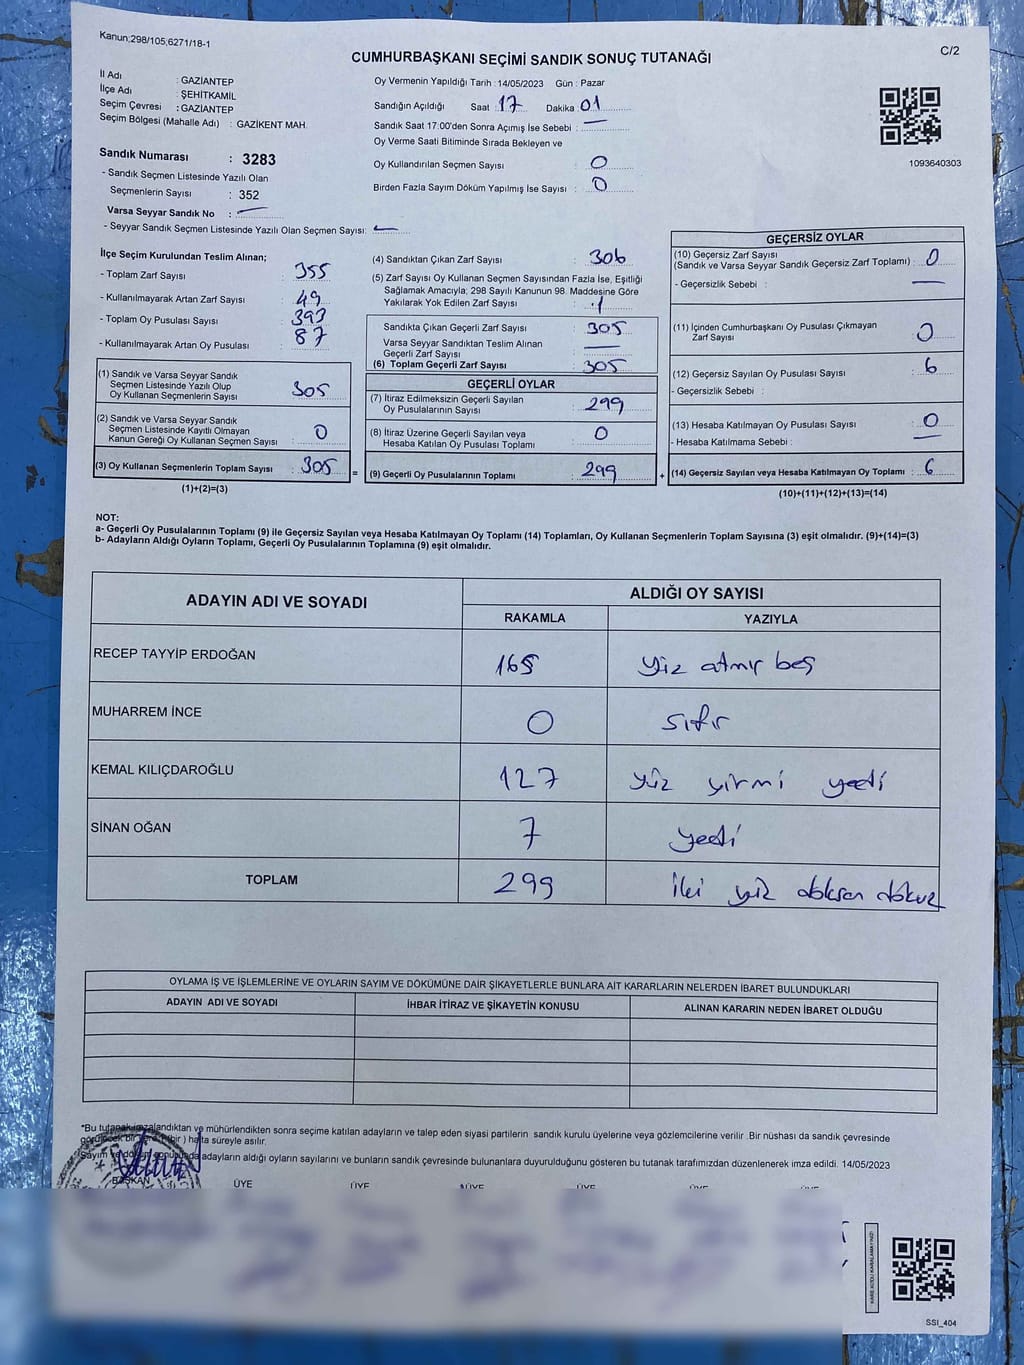 Kanun;298/105;6271/18-1
C/2
CUMHURBAŞKANI SEÇİMİ SANDIK SONUÇ TUTANAĞI
İl Adı : GAZİANTEP
İlçe Adı : ŞEHİTKAMİL
Seçim Çevresi : GAZİANTEP
Seçim Bölgesi (Mahalle Adı) : GAZİKENT MAH.
Sandık Numarası : 3283
- Sandık Seçmen Listesinde Yazılı Olan
Seçmenlerin Sayısı : 352
Varsa Seyyar Sandık No : —
- Seyyar Sandık Seçmen Listesinde Yazılı Olan Seçmen Sayısı: —
Oy Vermenin Yapıldığı Tarih : 14/05/2023 Gün : Pazar
Sandığın Açıldığı Saat : 17 Dakika : 01
Sandık Saat 17:00'den Sonra Açımış İse Sebebi : —
Oy Verme Saati Bitiminde Sırada Bekleyen ve
Oy Kullandırılan Seçmen Sayısı : 0
Birden Fazla Sayım Döküm Yapılmış İse Sayısı : 0
1093640303
İlçe Seçim Kurulundan Teslim Alınan;
- Toplam Zarf Sayısı : 355
- Kullanılmayarak Artan Zarf Sayısı : 49
- Toplam Oy Pusulası Sayısı : 393
- Kullanılmayarak Artan Oy Pusulası : 87
(1) Sandık ve Varsa Seyyar Sandık
Seçmen Listesinde Yazılı Olup
Oy Kullanan Seçmenlerin Sayısı : 305
(2) Sandık ve Varsa Seyyar Sandık
Seçmen Listesinde Kayıtlı Olmayan
Kanun Gereği Oy Kullanan Seçmen Sayısı : 0
(3) Oy Kullanan Seçmenlerin Toplam Sayısı : 305
(1)+(2)=(3)
(4) Sandıktan Çıkan Zarf Sayısı : 306
(5) Zarf Sayısı Oy Kullanan Seçmen Sayısından Fazla İse, Eşitliği
Sağlamak Amacıyla; 298 Sayılı Kanunun 98. Maddesine Göre
Yakılarak Yok Edilen Zarf Sayısı : 1
Sandıkta Çıkan Geçerli Zarf Sayısı : 305
Varsa Seyyar Sandıktan Teslim Alınan
Geçerli Zarf Sayısı : —
(6) Toplam Geçerli Zarf Sayısı : 305
GEÇERLİ OYLAR
(7) İtiraz Edilmeksizin Geçerli Sayılan
Oy Pusulalarının Sayısı : 299
(8) İtiraz Üzerine Geçerli Sayılan veya
Hesaba Katılan Oy Pusulası Toplamı : 0
= (9) Geçerli Oy Pusulalarının Toplamı : 299
GEÇERSİZ OYLAR
(10) Geçersiz Zarf Sayısı
(Sandık ve Varsa Seyyar Sandık Geçersiz Zarf Toplamı) : 0
- Geçersizlik Sebebi : —
(11) İçinden Cumhurbaşkanı Oy Pusulası Çıkmayan
Zarf Sayısı : 0
(12) Geçersiz Sayılan Oy Pusulası Sayısı : 6
- Geçersizlik Sebebi :
(13) Hesaba Katılmayan Oy Pusulası Sayısı : 0
- Hesaba Katılmama Sebebi : —
+ (14) Geçersiz Sayılan veya Hesaba Katılmayan Oy Toplamı : 6
(10)+(11)+(12)+(13)=(14)
NOT:
a- Geçerli Oy Pusulalarının Toplamı (9) ile Geçersiz Sayılan veya Hesaba Katılmayan Oy Toplamı (14) Toplamları, Oy Kullanan Seçmenlerin Toplam Sayısına (3) eşit olmalıdır. (9)+(14)=(3)
b- Adayların Aldığı Oyların Toplamı, Geçerli Oy Pusulalarının Toplamına (9) eşit olmalıdır.
ADAYIN ADI VE SOYADI ALDIĞI OY SAYISI
RAKAMLA YAZIYLA
RECEP TAYYİP ERDOĞAN 165 yüz atmış beş
MUHARREM İNCE 0 sıfır
KEMAL KILIÇDAROĞLU 127 yüz yirmi yedi
SİNAN OĞAN 7 yedi
TOPLAM 299 iki yüz doksan dokuz
OYLAMA İŞ VE İŞLEMLERİNE VE OYLARIN SAYIM VE DÖKÜMÜNE DAİR ŞİKAYETLERLE BUNLARA AİT KARARLARIN NELERDEN İBARET BULUNDUKLARI
ADAYIN ADI VE SOYADI İHBAR İTİRAZ VE ŞİKAYETİN KONUSU ALINAN KARARIN NEDEN İBARET OLDUĞU
*Bu tutanak imzalandıktan ve mühürlendikten sonra seçime katılan adayların ve talep eden siyasi partilerin sandık kurulu üyelerine veya gözlemcilerine verilir .Bir nüshası da sandık çevresinde
görülecek bir yere (bir ) hafta süreyle asılır.
Sayım ve döküm sonucunda adayların aldığı oyların sayılarını ve bunların sandık çevresinde bulunanlara duyurulduğunu gösteren bu tutanak tarafımızdan düzenlenerek imza edildi. 14/05/2023
BAŞKAN ÜYE ÜYE ÜYE ÜYE ÜYE
SSİ_404